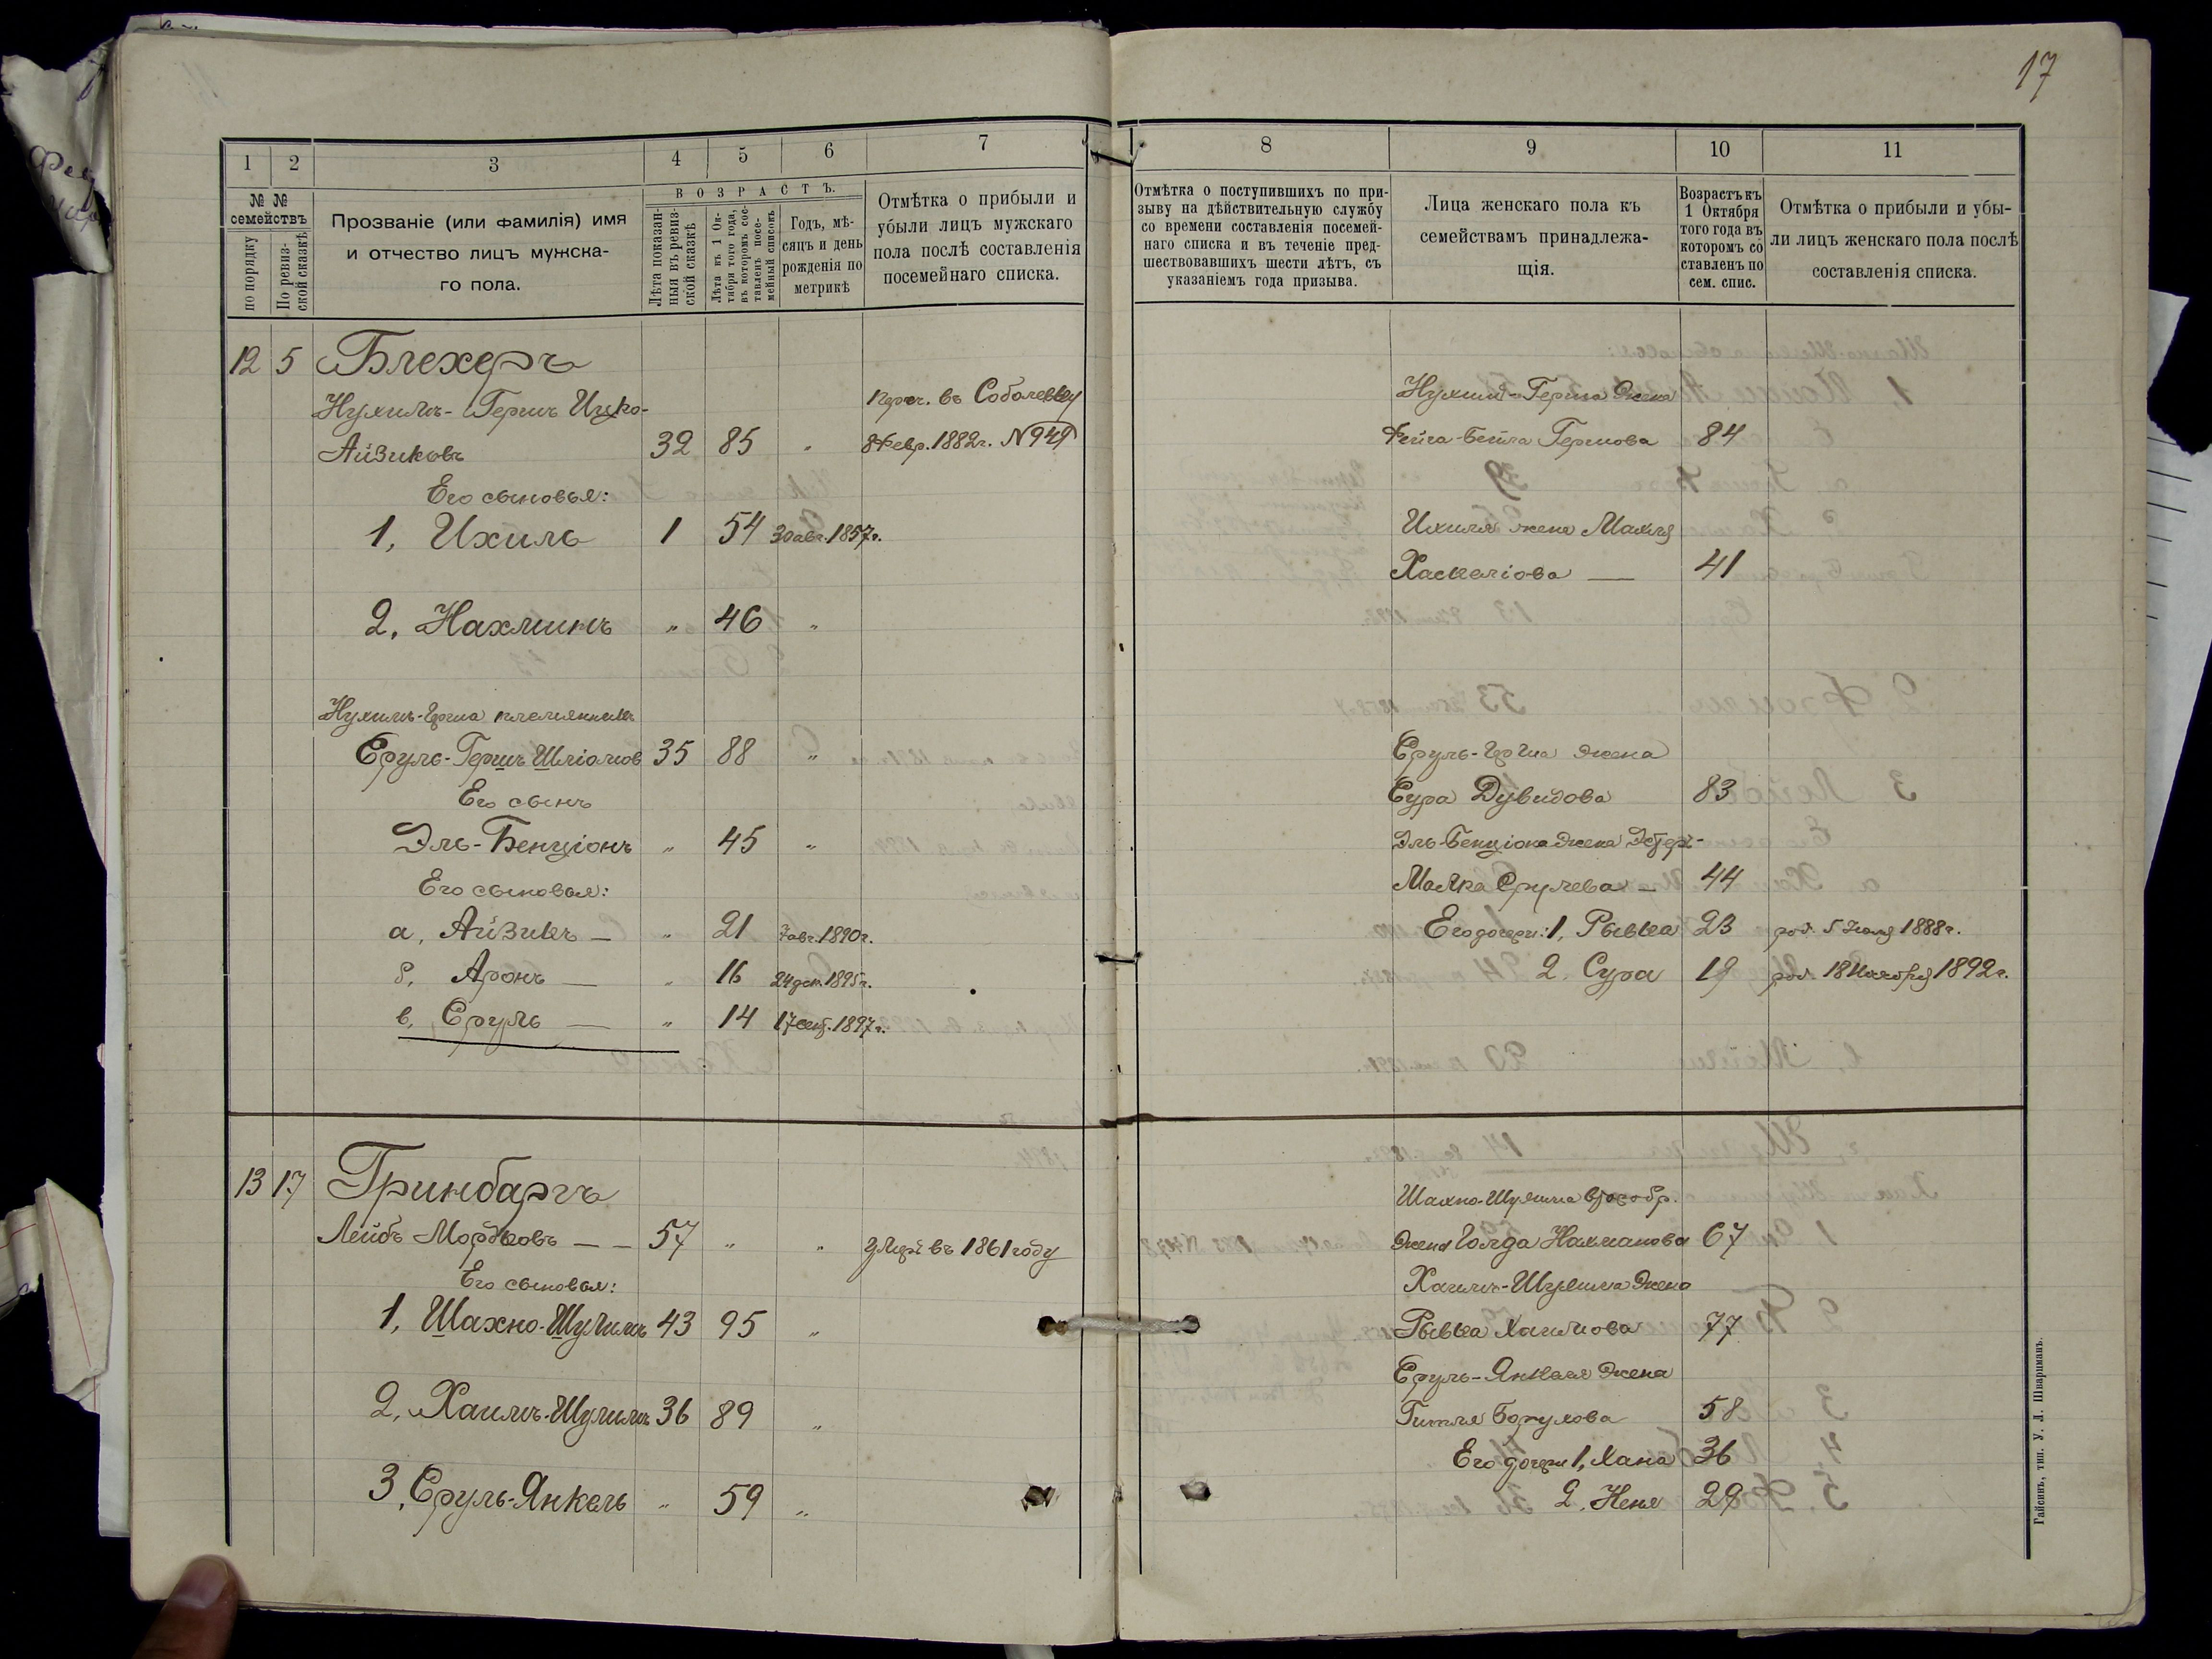 17
1
2
3
4
5
6
7
№ №
семействъ
по порядку
По ревиз-
ской сказкѣ
Прозваніе (или фамилія) имя
и отчество лицъ мужска-
го пола.
ВОЗРАСТЪ.
Лѣта показан-
ныя въ ревиз-
ской сказкѣ
Лѣта къ 1 Ок-
тября того года,
въ которомъ сос-
тавленъ посе-
мейный списокъ
Годъ, мѣ-
сяцъ и день
рожденія по
метрикѣ
Отмѣтка о прибыли и
убыли лицъ мужскаго
пола послѣ составленія
посемейнаго списка.
12 5 Блехеръ
Нухимъ-Гершъ Ицко-
переч. въ Соболевку
Айзиковъ 32 85 " 8 Февр. 1882г. № 949
Его сыновья:
1, Ихиль 1 54 30 авг. 1857г.
2, Нахманъ " 46 "
Нухимъ-Герша племянникъ
Сруль-Гершъ Шліомов 35 88 "
Его сынъ
Эль-Бенціонъ " 45 "
Его сыновья:
а, Айзикъ — " 21 7 авг. 1890г.
б, Аронъ — " 16 24 дек. 1895г.
в, Сруль — " 14 17 сент. 1897г.
13 17 Гринбаргъ
Лейбъ Мордковъ — — 57 " " умеръ въ 1861 году
Его сыновья:
1, Шахно-Шулимъ 43 95 "
2, Хаимъ-Шулимъ 36 89 "
3, Сруль-Янкель " 59 "
8
9
10
11
Отмѣтка о поступившихъ по при-
зыву на дѣйствительную службу
со времени составленія посемей-
наго списка и въ теченіе пред-
шествовавшихъ шести лѣтъ, съ
указаніемъ года призыва.
Лица женскаго пола къ
семействамъ принадлежа-
щія.
Возрастъ къ
1 Октября
того года въ
которомъ со
ставленъ по
сем. спис.
Отмѣтка о прибыли и убы-
ли лицъ женскаго пола послѣ
составленія списка.
Нухим-Герша жена
Фейга-Бейла Гершова 84
Ихиля жена Махля
Хаскеліова — 41
Сруль-Герша жена
Сура Дувидова 83
Эль-Бенціона жена Эстеръ-
Малка Срулева — 44
Его дочери: 1, Рывка 23 род. 5 Іюля 1888г.
2, Сура 19 род. 18 Ноября 1892г.
Шахно-Шулима
жена Голда Нахманова 67
Хаимъ-Шулима жена
Рывка Хаимова 77
Сруль-Янкеля жена
Гитля Борухова 58
Его дочери 1, Хана 36
2, Неня 29
Гайсинъ, тип. У. Л. Шварцманъ.